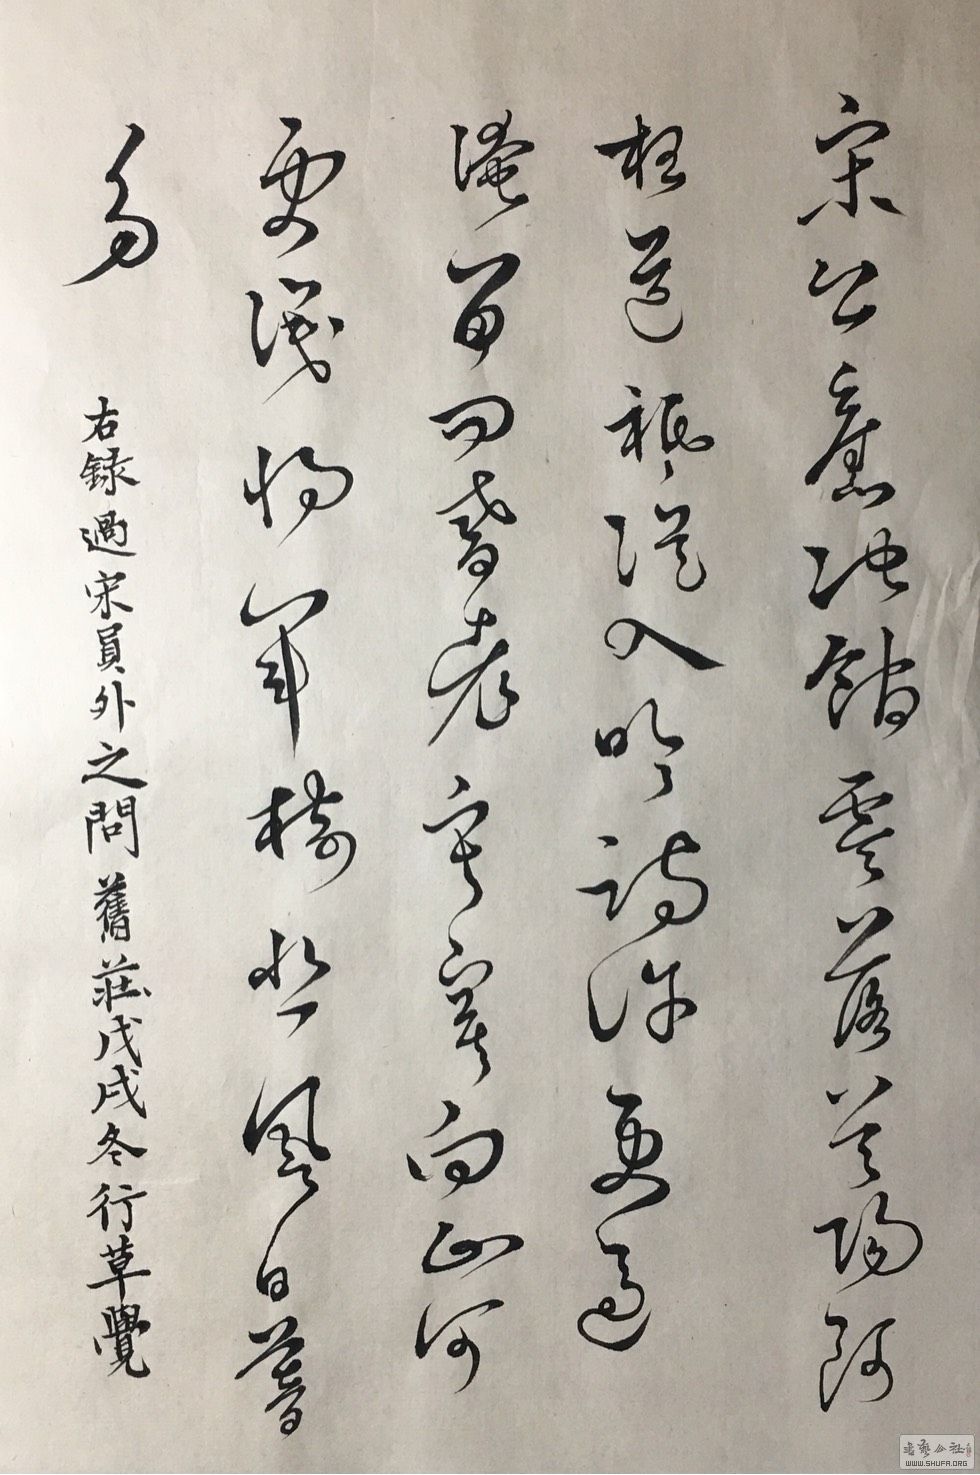 宋公舊池館零落首陽阿
枉道祗從入吟詩許更過
淹留問耆老寂寞向山河
更識將軍樹悲風日暮
多
右録過宋員外之問舊莊戊戌冬行草覺
书艺公社
WWW.SHUFA.ORG